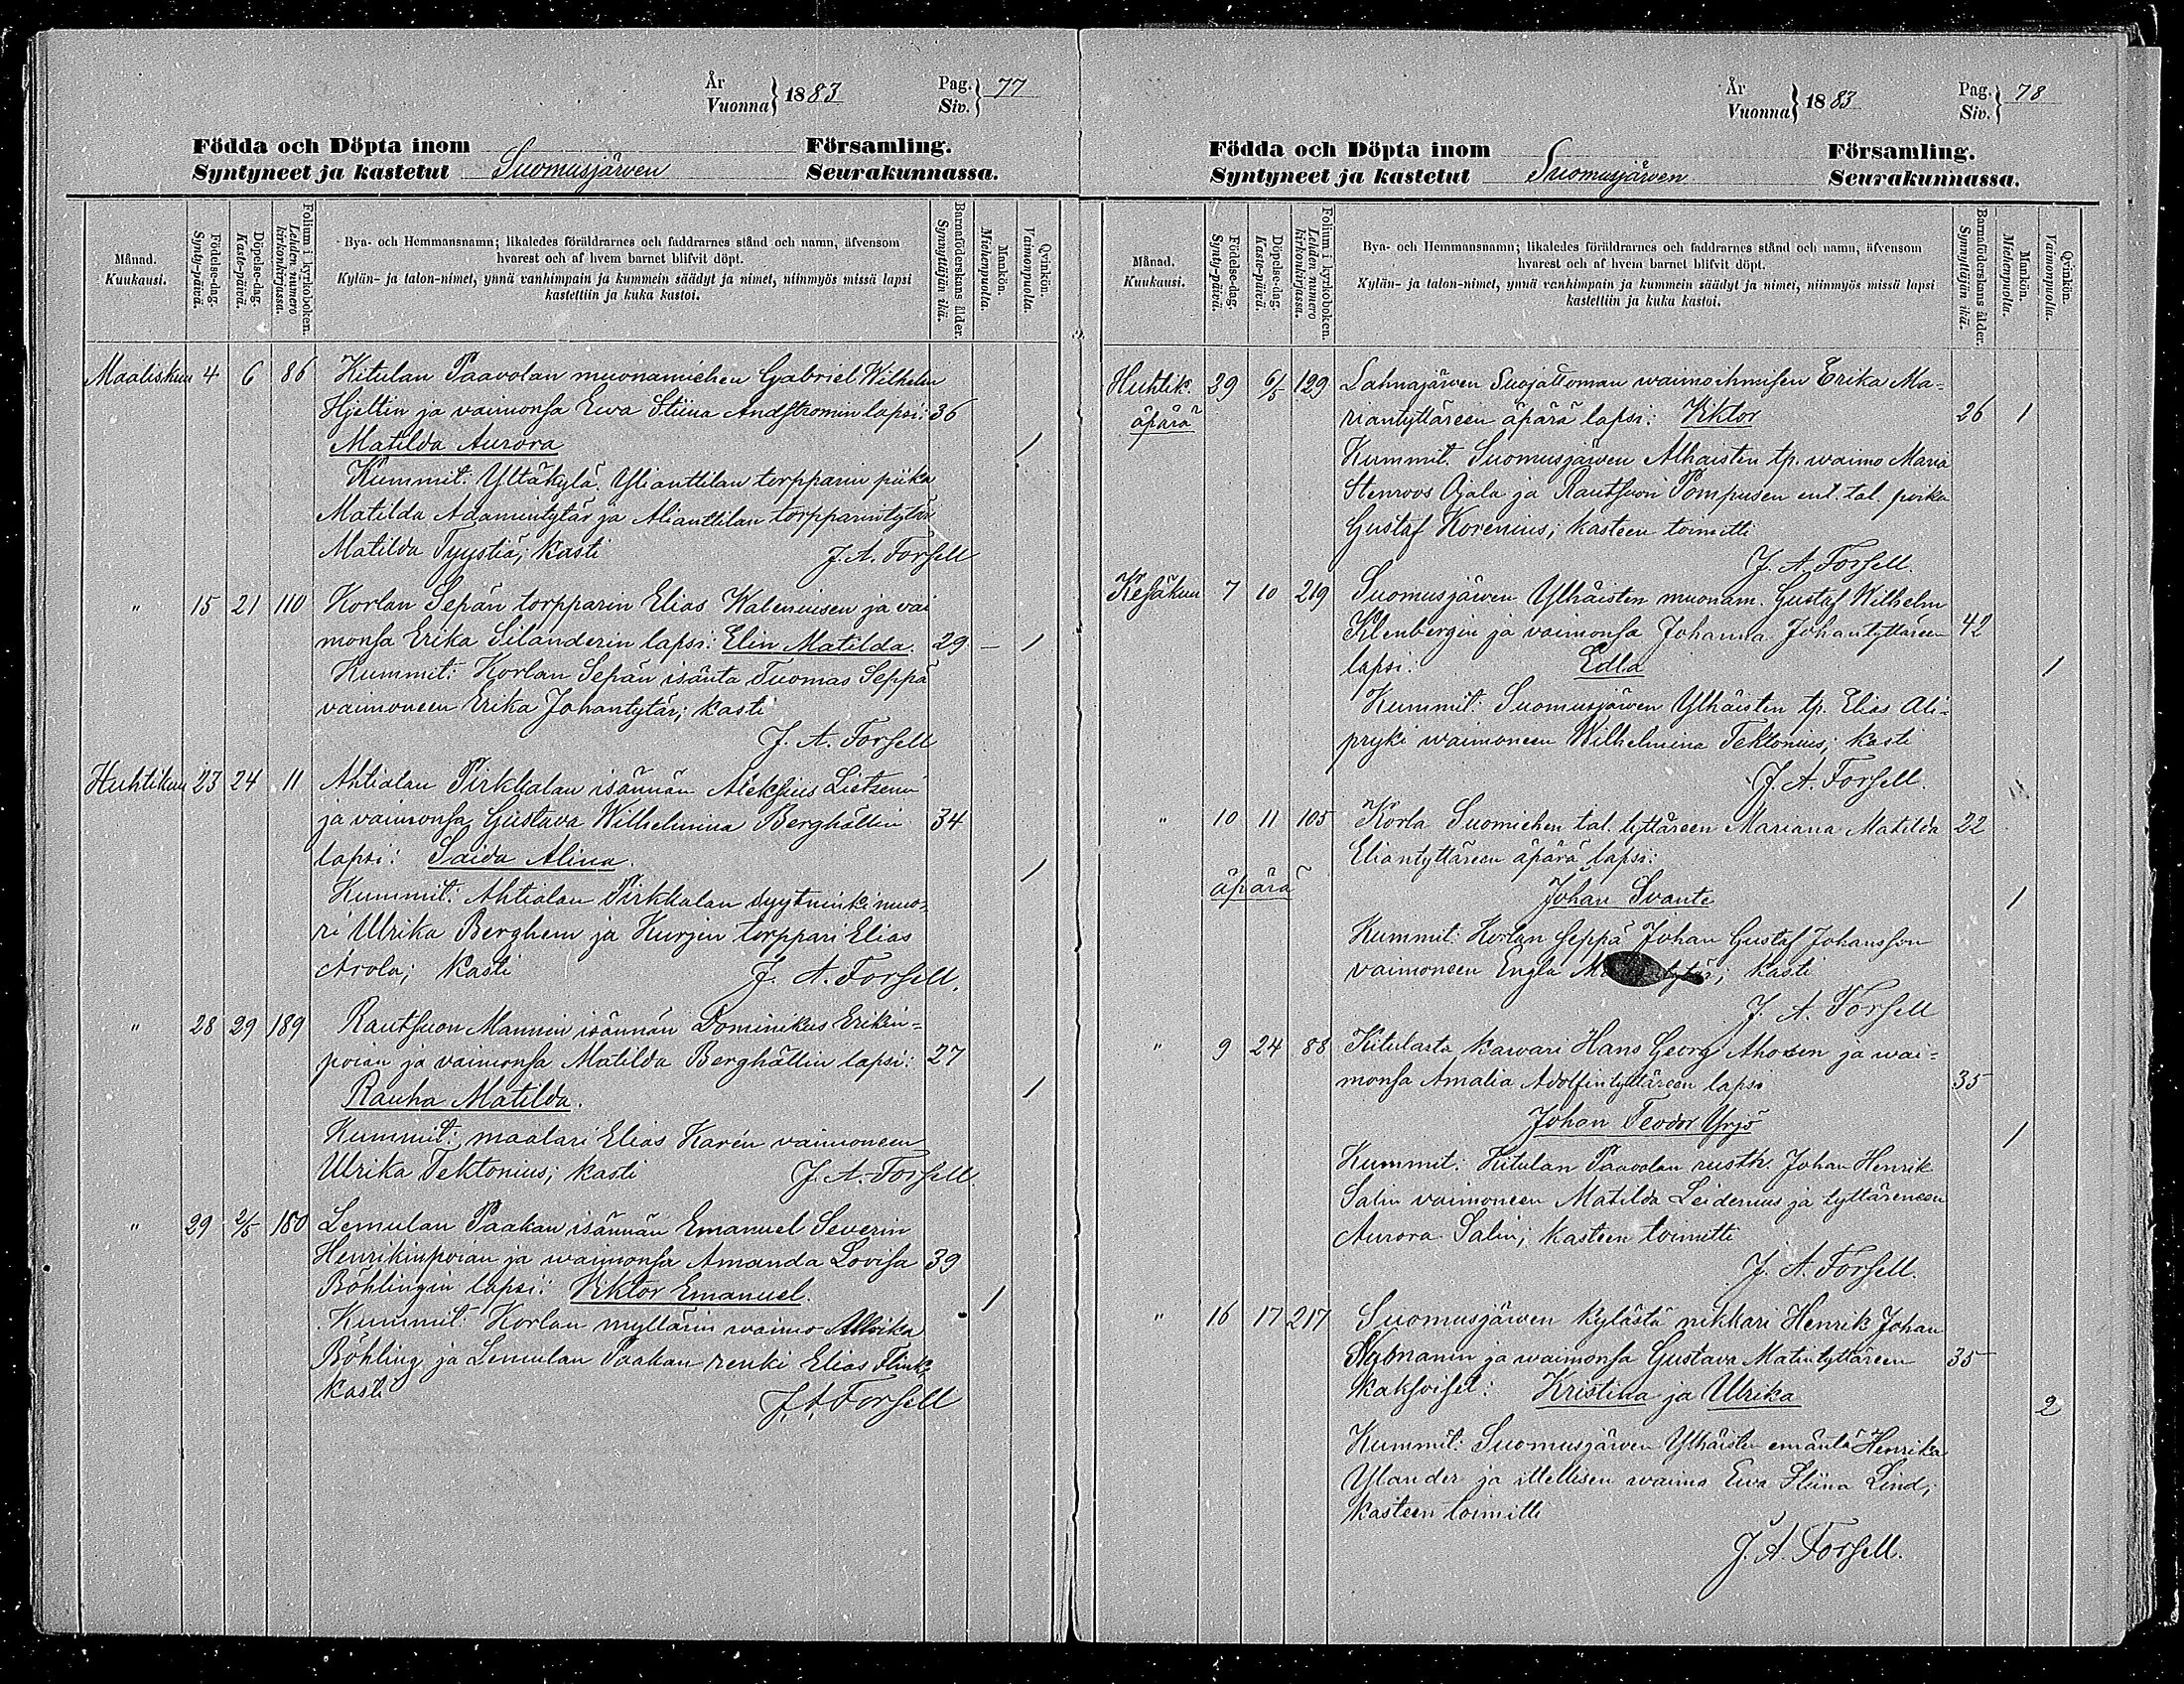 År
Vuonna} 1883
Pag.
Siv.} 77
Födda och Döpta inom Församling.
Syntyneet ja kastetut Suomusjärven Seurakunnassa.
Månad.
Kuukausi.
Födelse-dag.
Synty-päivä.
Döpelse-dag.
Kaste-päivä.
Folium i kyrkoboken.
Lehden numero
kirkonkirjassa.
Bya- och Hemmansnamn; likaledes föräldrarnes och faddrarnes stånd och namn, äfvensom
hvarest och af hvem barnet blifvit döpt.
Kylän- ja talon-nimet, ynnä vanhimpain ja kummein säädyt ja nimet, niinmyös missä lapsi
kastettiin ja kuka kastoi.
Barnaföderskans ålder.
Synnyttäjän ikä.
Mankön.
Miehenpuolta.
Qvinkön.
Vaimonpuolta.
Maaliskuu 4 6 86 Kitulan Paavolan muonamiehen Gabriel Wilhelm
Hjeltin ja vaimonsa Ewa Stiina Andströmin lapsi: 36
Matilda Aurora 1
Kummit: Yltäkylä. Ylianttilan torpparin piika
Matilda Adamintytär ja Alianttilan torpparintytär
Matilda Tyystiä; kasti J. A. Forsell
" 15 21 110 Korlan Sepän torpparin Elias Waleniusen ja vai
monsa Erika Silanderin lapsi: Elin Matilda. 29 – 1
Kummit: Korlan Sepän isäntä Tuomas Seppä
vaimoneen Erika Johantytär; kasti
J. A. Forsell
Huhtikuu 23 24 11 Ahtialan Pirkkalan isännän Aleksius Lietzenin
ja vaimonsa Gustava Wilhelmina Berghällin 34
lapsi: Saida Alina. 1
Kummit: Ahtialan Pirkkalan syytninkimuo-
ri Ulrika Berghem ja Kurjen torppari Elias
Arola; kasti J. A. Forsell.
" 28 29 189 Rautsuon Mannin isännän Dominikus Erikin-
poian ja vaimonsa Matilda Berghällin lapsi: 27
Rauha Matilda. 1
Kummit: maalari Elias Karén vaimoneen
Ulrika Tektonius; kasti J. A. Forsell.
" 29 2/5 180 Lemulan Paakan isännän Emanuel Severin
Henrikinpoian ja waimonsa Amanda Lovisa 39
Böhlingin lapsi: Viktor Emanuel. 1
Kummit: Korlan myllärin waimo Ulrika
Böhling ja Lemulan Paakan renki Elias Flink;
kasti
J. A. Forsell
År
Vuonna} 1883
Pag.
Siv.} 78
Födda och Döpta inom Församling.
Syntyneet ja kastetut Suomusjärwen Seurakunnassa.
Månad.
Kuukausi.
Födelse-dag.
Synty-päivä.
Döpelse-dag.
Kaste-päivä.
Folium i kyrkoboken.
Lehden numero
kirkonkirjassa.
Bya- och Hemmansnamn; likaledes föräldrarnes och faddrarnes stånd och namn, äfvensom
hvarest och af hvem barnet blifvit döpt.
Kylän- ja talon-nimet, ynnä vanhimpain ja kummein säädyt ja nimet, niinmyös missä lapsi
kastettiin ja kuka kastoi.
Barnaföderskans ålder.
Synnyttäjän ikä.
Mankön.
Miehenpuolta.
Qvinkön.
Vaimonpuolta.
Huhtik. 6/5 129 Lahnajärwen Suojattoman waimoihmisen Erika Ma-
äpärä riantyttäreen äpärä lapsi: Viktor 26 1
Kummit. Suomusjärwen Alhaisten tp. waimo Maria
Stenroos Ojala ja Rautsuon Pompusen ent. tal. poika
Gustaf Korenius; kasteen toimitti
J. A. Forsell.
Kesäkuu 7 10 219 Suomusjärwen Ylhäisten muonam. Gustaf Wilhelm
Klenbergin ja vaimonsa Johanna Johantyttäreen 42
lapsi: Edla 1
Kummit: Suomusjärwen Ylhäisten tp. Elias Ali-
pryki waimoneen Wilhelmina Tektonius; kasti
J. A. Forsell.
" 10 11 105 Korla Suomiehen tal. tyttäreen Mariana Matilda 22
Eliantyttäreen äpärä lapsi:
äpärä Johan Svante 1
Kummit: Korlan seppä Johan Gustaf Johansson
vaimoneen Engla kasti
J. A. Forsell
" 9 24 88 Kitulasta kawari Hans Georg Ahosen ja wai-
monsa Amalia Adolfintyttäreen lapsi 35
Johan Teodor Yrjö 1
Kummit: Kitulan Paavolan rusth. Johan Henrik
Salin vaimoneen Matilda Leidenius ja tyttäreneen
Aurora Salin; kasteen toimitti
J. A. Forsell.
" 16 17 217 Suomusjärwen kylästä nikkari Henrik Johan
Nymanin ja waimonsa Gustava Matintyttäreen 35
kaksoiset: Kristina ja Ulrika 2
Kummit: Suomusjärwen Ylhäisten emäntä Henrika
Ylander ja ittellisen waimo Ewa Stiina Lind;
kasteen toimitti
J. A. Forsell.